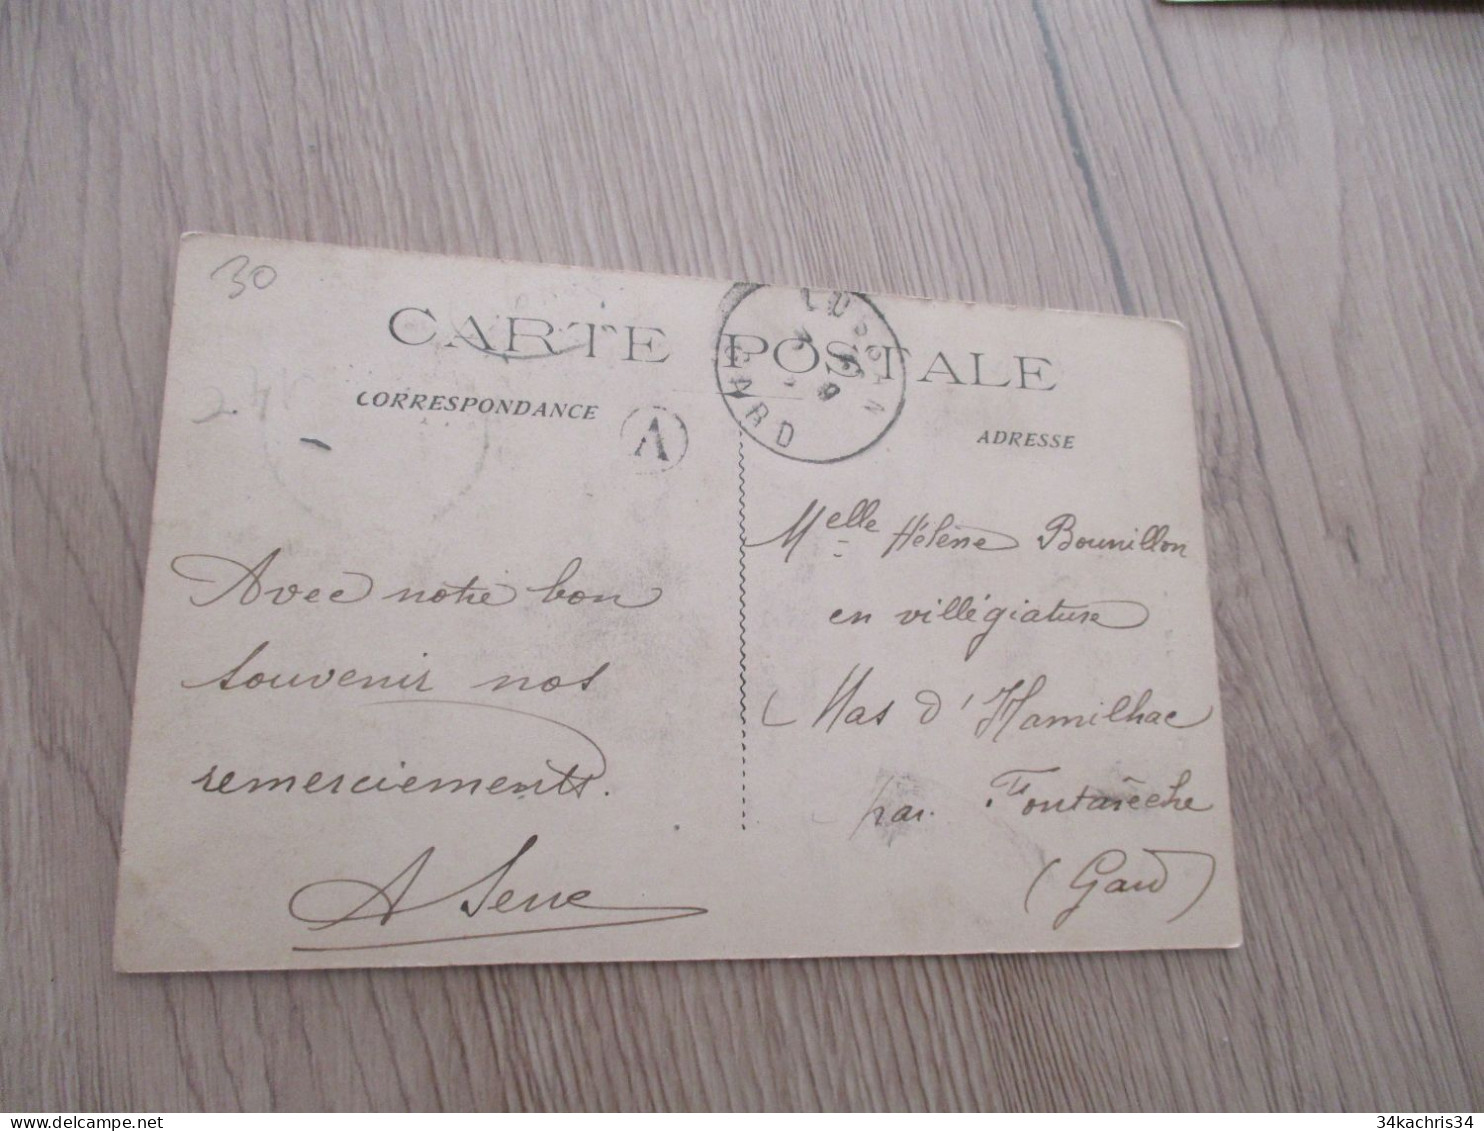 30
CARTE POSTALE
CORRESPONDANCE
A
LUSSAN
GARD
ADRESSE
Avec notre bon
souvenir nos
remerciements.
A Serre
Melle Hélène Bounillon
en villégiature
Mas d'Hamilhac
par Fontarèche
(Gard)
delcampe.net
34kachris34